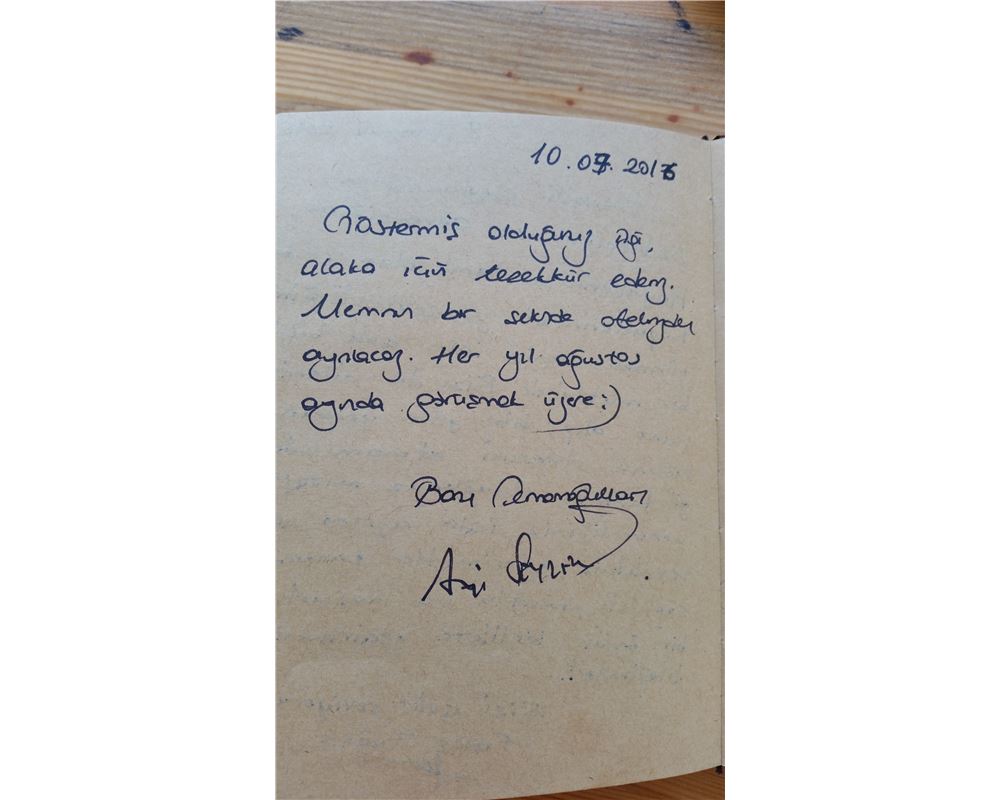 10.07.2016
Göstermiş olduğunuz ilgi,
alaka için teşekkür ederiz.
Memnun bir şekilde otelinizden
ayrılacağız. Her yıl ağustos
ayında görüşmek üzere :)